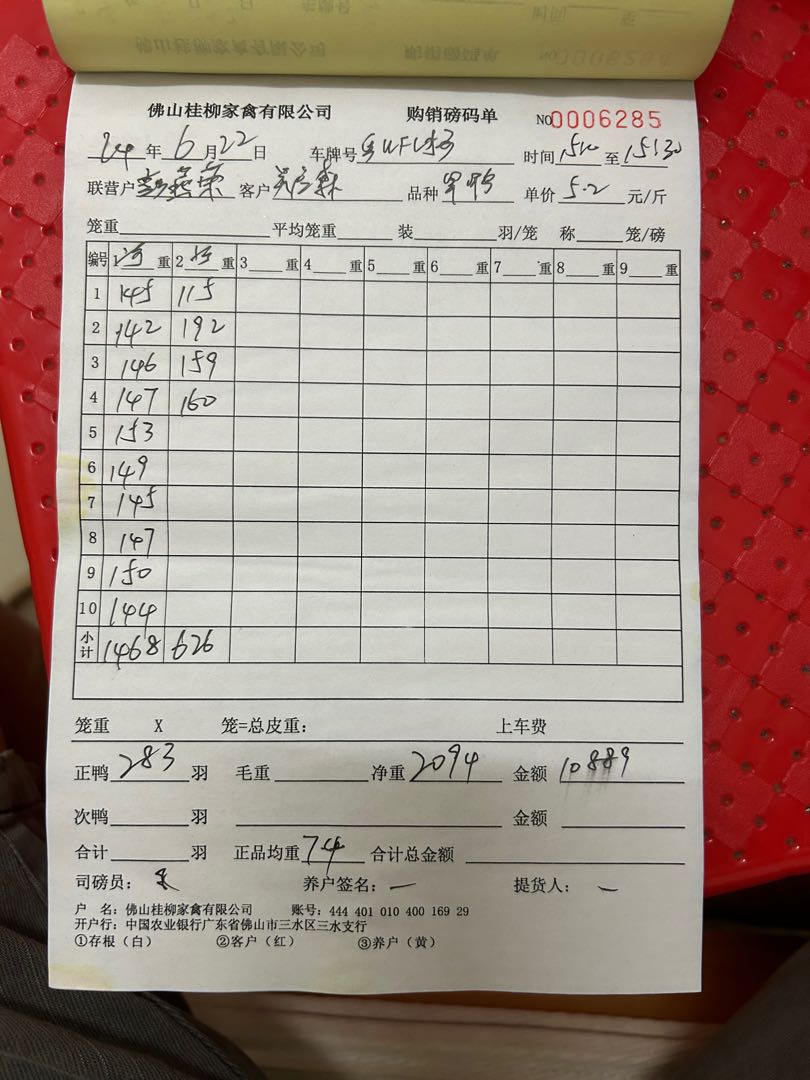 佛山桂柳家禽有限公司 购销磅码单 NO0006285
24年6月22日 车牌号 时间 至15:30
联营户 客户 品种 单价5.2元/斤
笼重 平均笼重 装 羽/笼 称 笼/磅
编号 1 重 2 重 3 重 4 重 5 重 6 重 7 重 8 重 9 重
1 145 115
2 142 192
3 146 159
4 147 160
5 153
6 149
7 145
8 147
9 150
10 144
小计 1468 626
笼重 X 笼=总皮重: 上车费
正鸭283羽 毛重 净重2094 金额10889
次鸭 羽 金额
合计 羽 正品均重7.4 合计总金额
司磅员: 养户签名: 提货人:
户 名: 佛山桂柳家禽有限公司 账号: 444 401 010 400 169 29
开户行: 中国农业银行广东省佛山市三水区三水支行
①存根(白) ②客户(红) ③养户(黄)